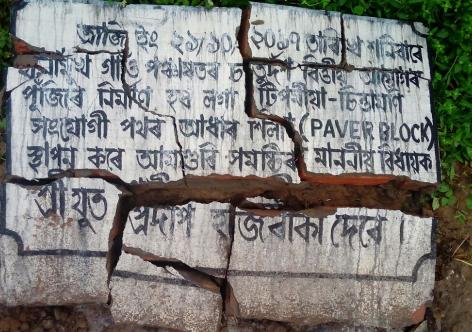 আজি ইং ২১/১০/২০১৭ তাৰিখ শনিবাৰে
গাওঁ পঞ্চায়তৰ চতুৰ্দশ বিত্তীয় আয়োগৰ
পুঁজিৰে নিৰ্মাণ হব লগা টিপনীয়া-চিন্তামণি
সংযোগী পথৰ আধাৰ শিলা (PAVER BLOCK)
স্থাপন কৰে আমগুৰি সমষ্টিৰ মাননীয় বিধায়ক
শ্ৰীযুত প্ৰদীপ হাজৰীকা দেৱে।